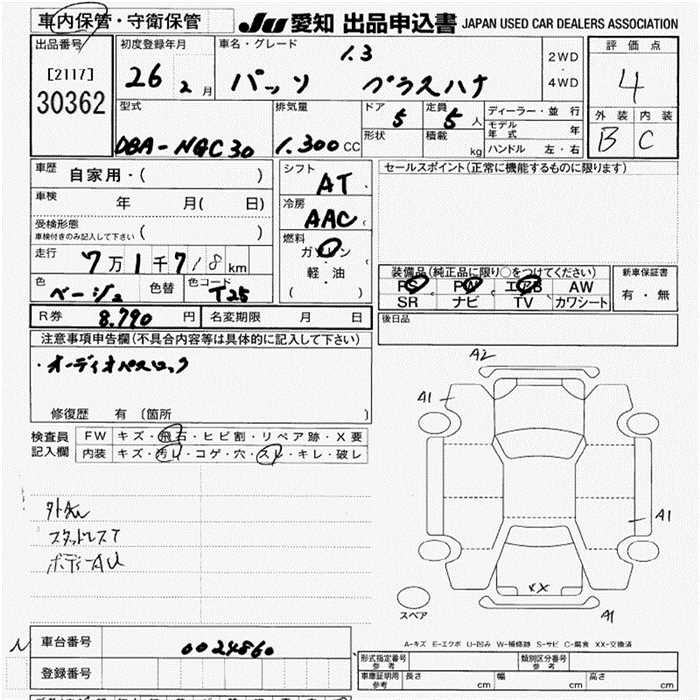 車内保管・守衛保管 JU 愛知 出品申込書 JAPAN USED CAR DEALERS ASSOCIATION
出品番号 初度登録年月 車名・グレード 評価点
[2117] 1.3 2WD
30362 26 2 月 パッソ プラスハナ 4WD 4
外装 内装
型式 排気量 ドア 定員 ディーラー・並行 B C
DBA-NGC30 1.300 CC 5 5 人 モデル年式 年
形状 積載 kg ハンドル 左・右
車歴 自家用・( ) シフト セールスポイント(正常に機能するものに限ります)
AT
車検 年 月( 日) 冷房
AAC
受検形態
車検付きのみ記入して下さい ( ) 燃料
ガソリン
走行 7万1千718km 軽・油 装備品(純正品に限り○をつけてください) 新車保証書
( ) PS PW エアB AW 有・無
色 ベージュ 色替 色コード T25 SR ナビ TV カワシート
R券 8.790 円 名変期限 月 日 後日品
注意事項申告欄(不具合内容等は具体的に記入して下さい)
・オーディオパスロック A2
A1
修復歴 有 (箇所 )
検査員 FW キズ・飛石・ヒビ割・リペア跡・X要
記入欄 内装 キズ・汚レ・コゲ・穴・スレ・キレ・破レ
外AU A1
スタッドレスT
ボディーAU
XX
スペア A1
A-キズ E-エクボ U-凹み W-補修跡 S-サビ C-腐食 XX-交換済
N 車台番号 0024860
形式指定番号 参考 類別区分番号 参考
登録番号 車庫証明用 参考 長さ cm 幅 cm 高さ cm